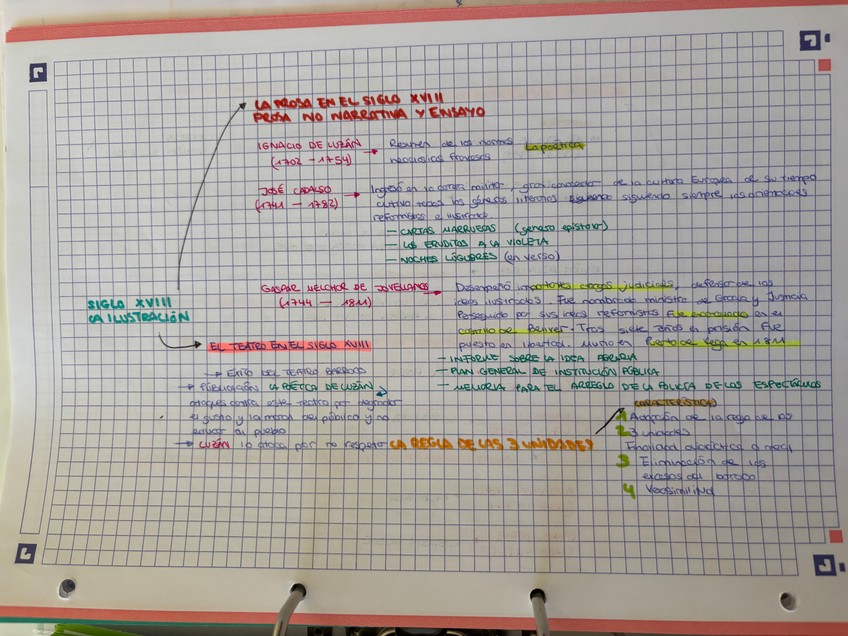 LA PROSA EN EL SIGLO XVIII
PROSA NO NARRATIVA Y ENSAYO
IGNACIO DE LUZÁN → Resumen de las normas La poética
(1702 – 1754) neoclásicas francesas
JOSÉ CADALSO → Ingresó en la carrera militar, gran conocedor de la cultura Europea de su tiempo
(1741 – 1782) cultivo todos los géneros literarios siguiendo siempre las
reformistas e ilustrada.
– CARTAS MARRUECAS (género epistolar)
– LOS ERUDITOS A LA VIOLETA
– NOCHES LÚGUBRES (en verso)
GASPAR MELCHOR DE JOVELLANOS → Desempeñó importantes cargos judiciales, defensor de las
(1744 – 1811) ideas ilustradas. Fue nombrado ministro de Gracia y Justicia
Perseguido por sus ideas reformistas fue encarcelado en el
castillo de Bellver. Tras siete años en prisión fue
puesto en libertad. Murió en Puerto de Vega en 1811
– INFORME SOBRE LA IDEA AGRARIA
– PLAN GENERAL DE INSTITUCIÓN PÚBLICA
– MEMORIA PARA EL ARREGLO DE LA POLICIA DE LOS ESPECTÁCULOS
SIGLO XVIII
LA ILUSTRACIÓN
EL TEATRO EN EL SIGLO XVIII
→ ÉXITO DEL TEATRO BARROCO
→ PÚBLICACIÓN LA POÉTICA DE LUZÁN
ataques contra este teatro por degradar
el gusto y la moral del público y no
educar al pueblo
→ LUZÁN lo ataca por no respetar LA REGLA DE LAS 3 UNIDADES
CARACTERÍSTICAS
1 Adopción de la regla de las
2 3 unidades
Finalidad didáctica o moral
3 Eliminación de los
excesos del barroco
4 Verosimilitud